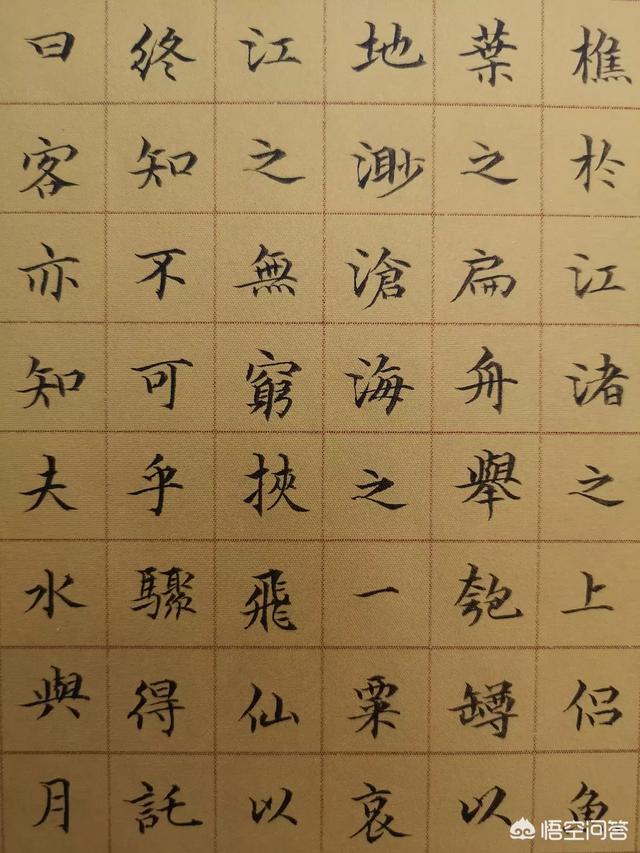 樵於江渚之上侶魚
葉之扁舟舉匏罇以
地渺滄海之一粟哀
江之無窮挾飛仙以
終知不可乎驟得託
曰客亦知夫水與月
悟空问答